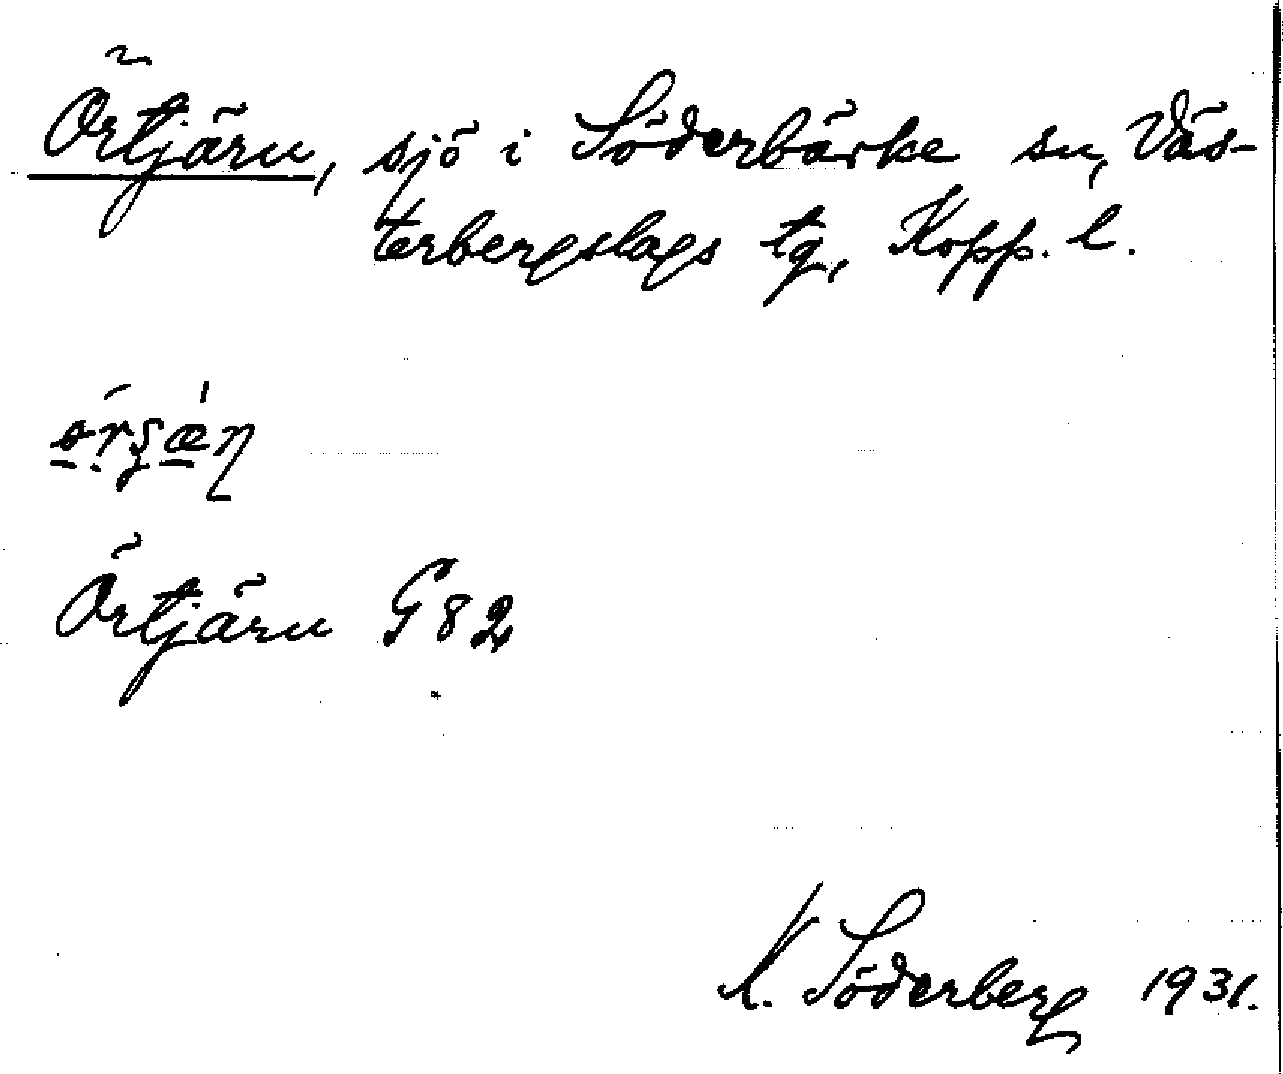 Örtjärn, sjö i Söderbärke sn, Väs-
terbergslags tg, Kopp. l.
Örtjärn G82
K. Söderberg 1931.